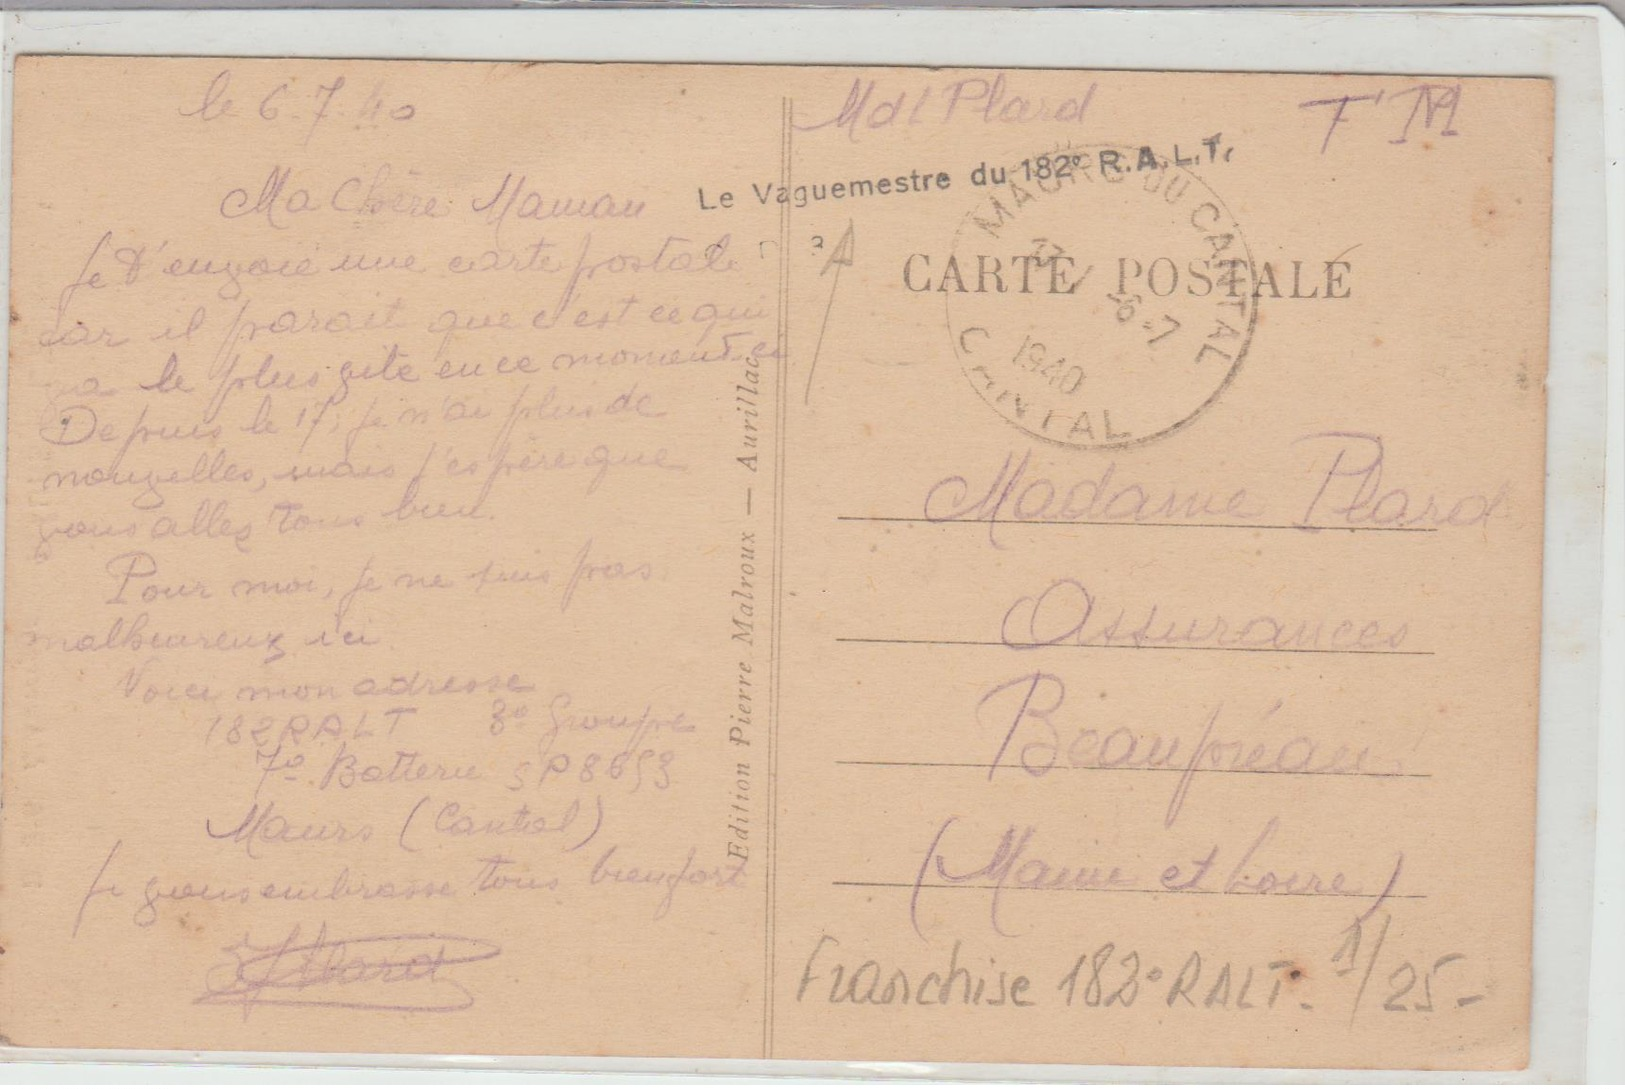 le 6.7.40
Ma Chère Maman
Je t'envoie une carte postale
car il parait que c'est ce qui
va le plus vite en ce moment ci
Depuis le 17, je n'ai plus de
nouvelles, mais j'espère que
vous allez tous bien.
Pour moi, je ne suis pas
malheureux ici
Voici mon adresse
182 RALT 3e Groupe
7e Batterie SP 8653
Maurs (Cantal)
Je vous embrasse tous bien fort
Plard
Edition Pierre Malroux — Aurillac
Mdl Plard F M
Le Vaguemestre du 182e R.A.L.T.
MAURS DU CANTAL
6-7
1940
CANTAL
CARTE POSTALE
Madame Plard
Assurances
Beaupréau
(Maine et Loire)
Franchise 182° RALT. 1/25-